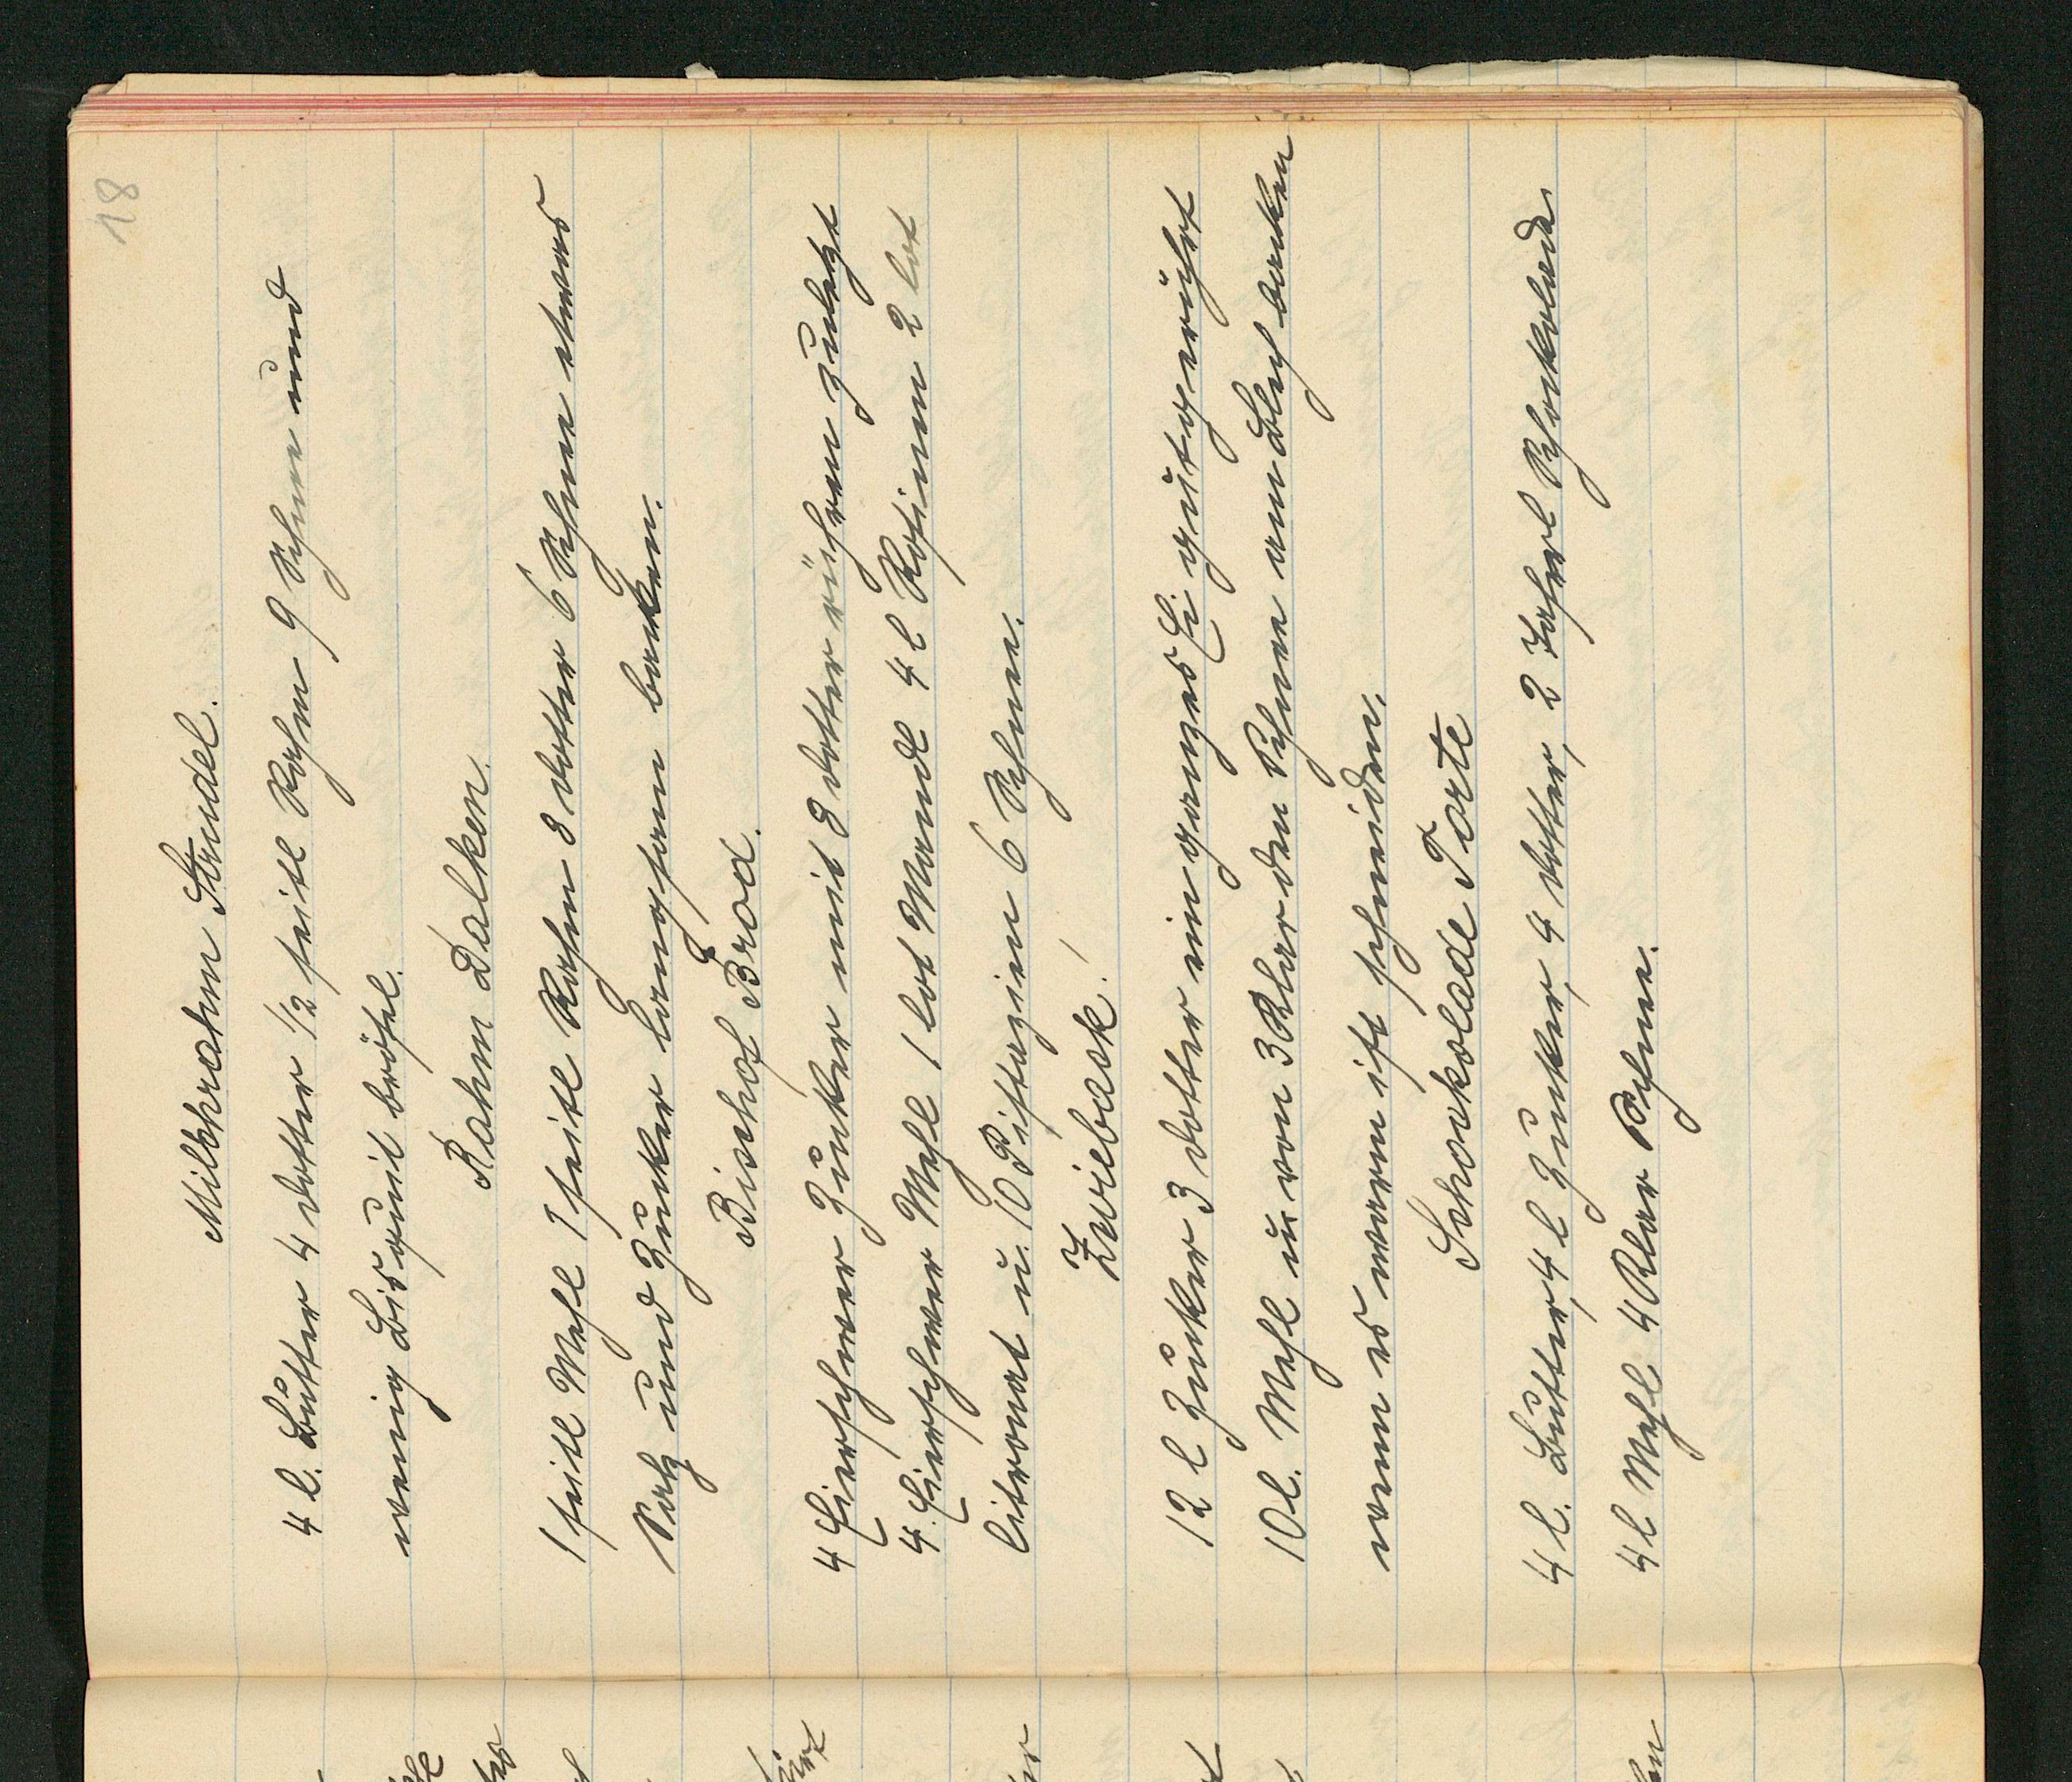 18
Milchrahm Strudel.
4 l. Butter 4 dotter ½ seitl Rahm 9 Schnee und
wenig Bisquit brösel.
Rahm Dalken.
1 seitl Mehl 1 seitl Rahm 8 dotter 6 Schnee etwas
Salz und Zucker langsam backen.
Bischof Brod.
4 Eierschwer Zucker mit 8 dotter rühren zuletzt
4. Eierschwer Mehl 1 lot Mandl 4 l Rosinen 2 lot
Citronat u. 10 Pistazien 6 Schnee.
Zwieback!
12 l Zucker 3 dotter ein ganzes Ei gut gerührt
10 l. Mehl u von 3 Klar den Schnee am Blech backen
wenn es warm ist schneiden.
Schockolade Torte
4 l. Butter, 4 l Zucker, 4 dotter, 2 Schockolade
4 l Mehl 4 Klar Schnee.